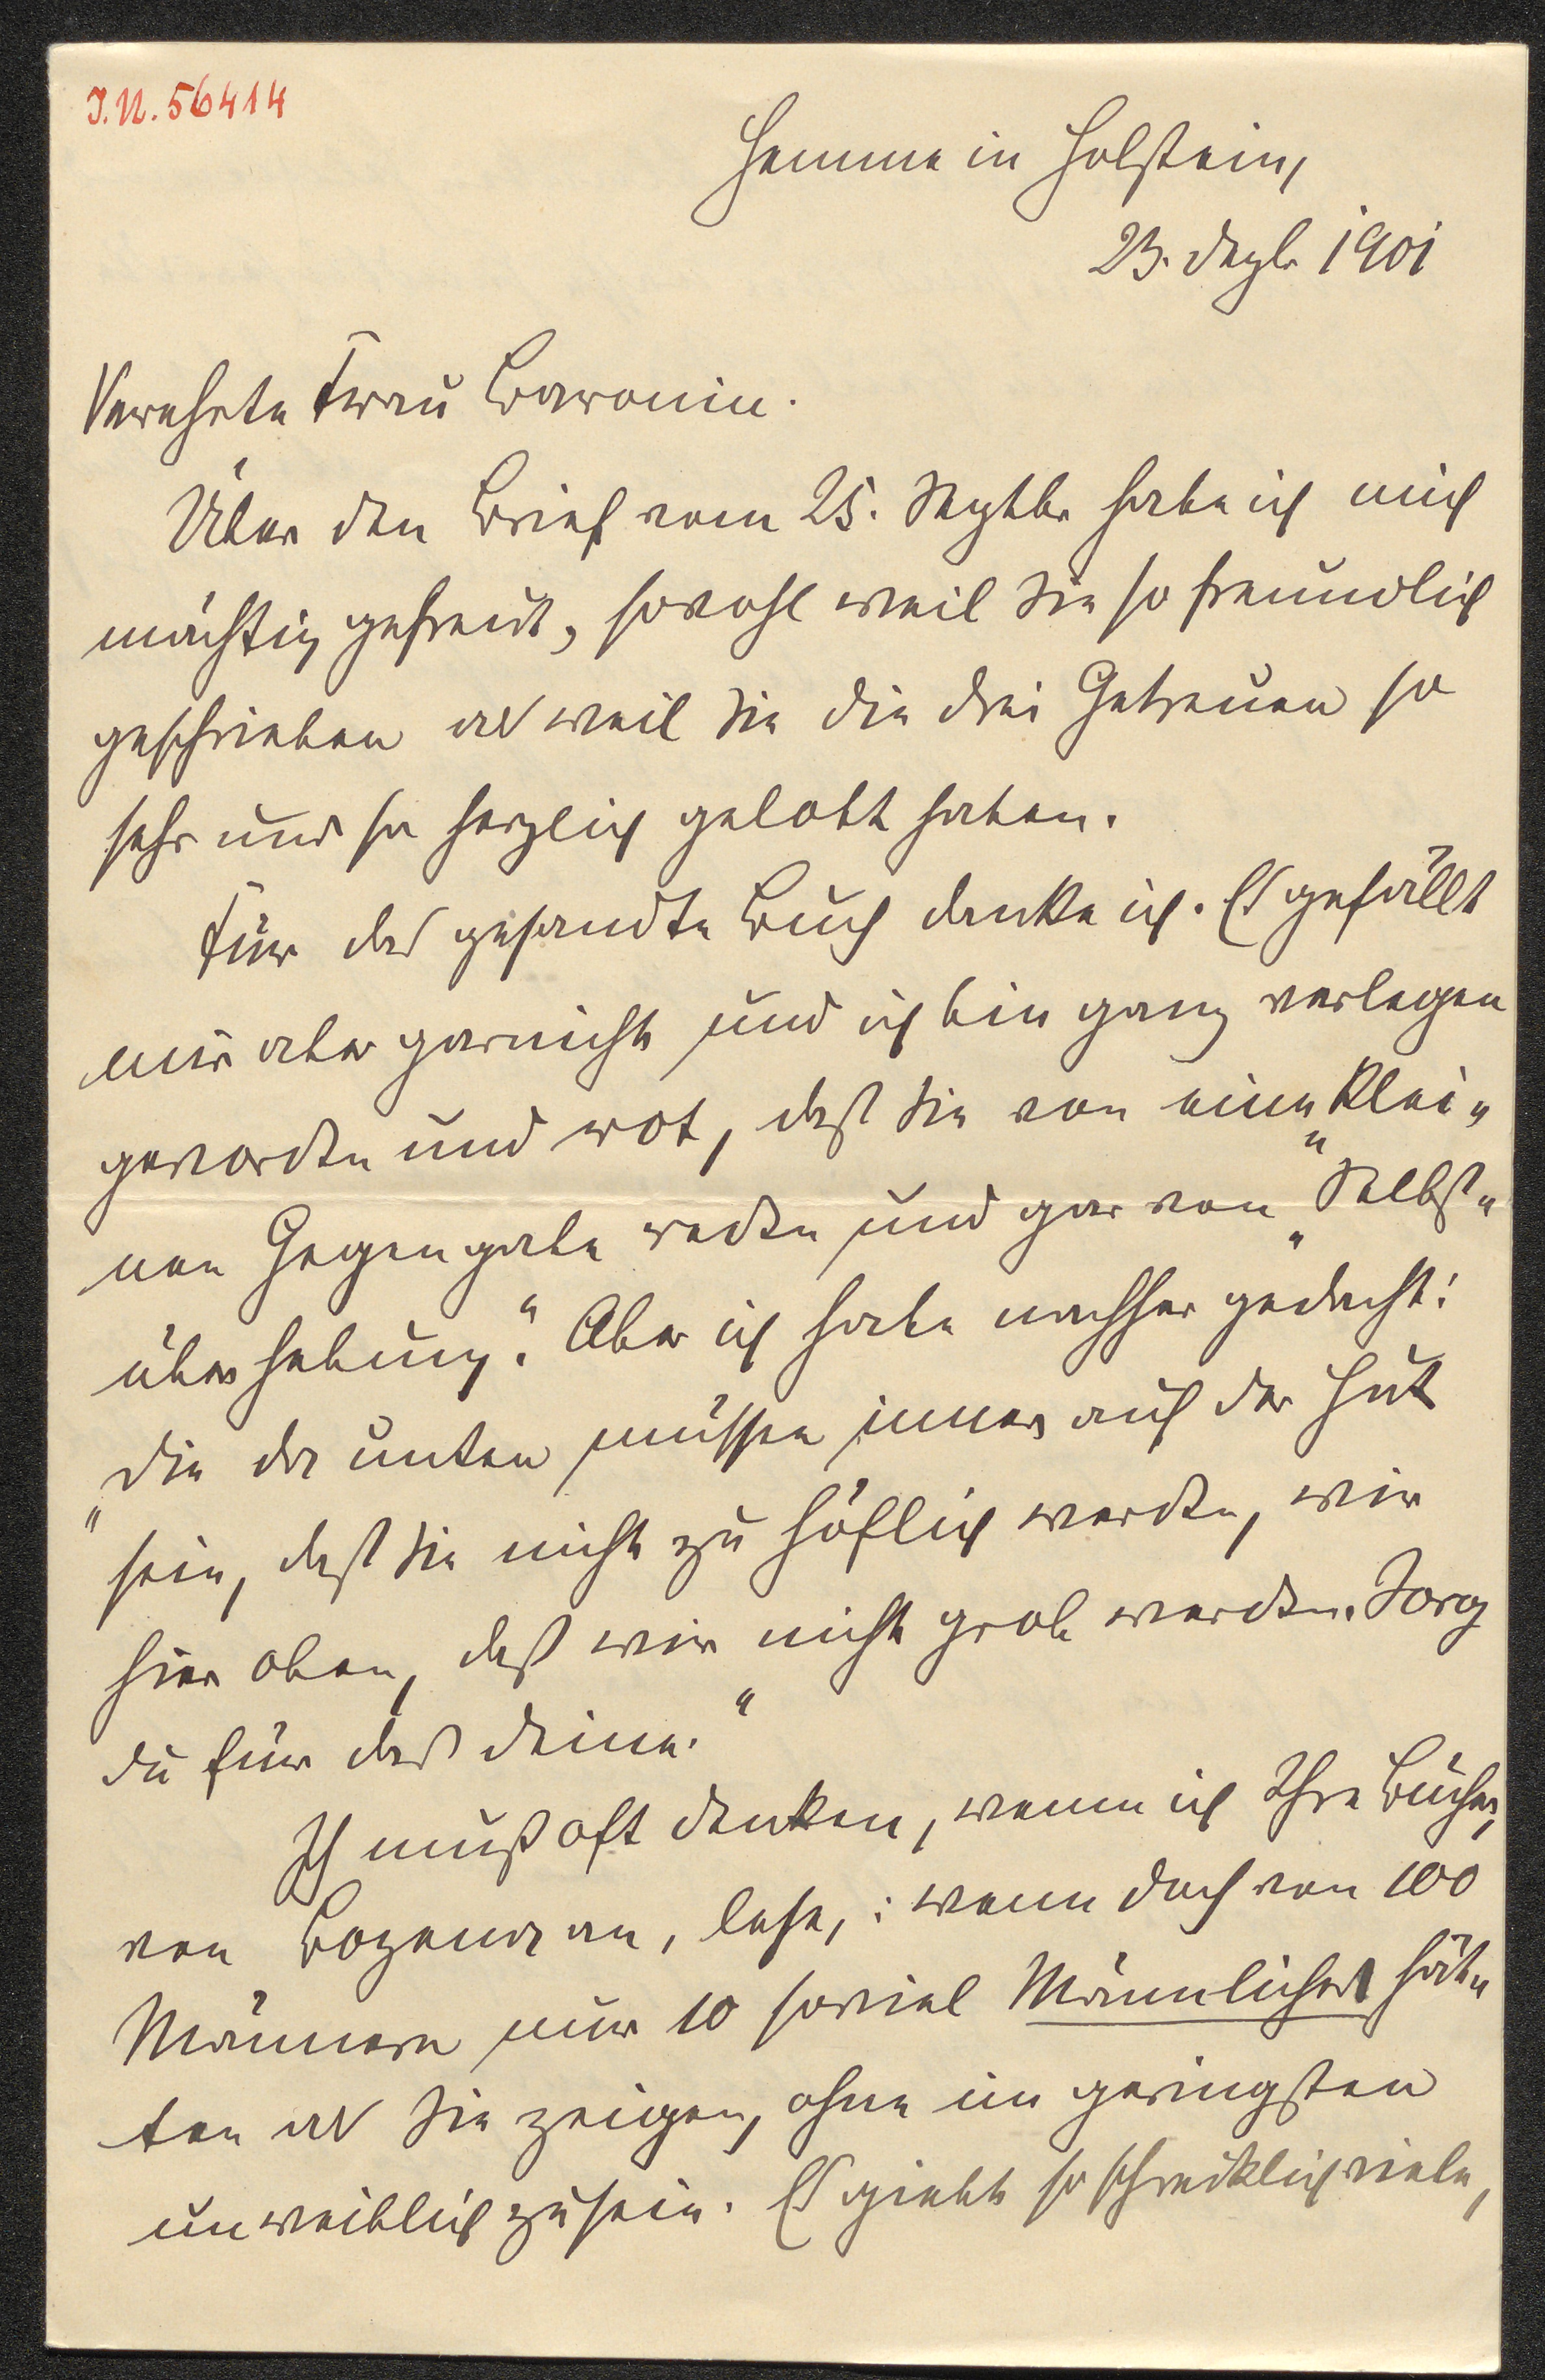 J.N. 56414
Hemme in Holstein,
23. Dezb. 1901
Verehrte Frau Baronin.
Über den Brief vom 25. Septbr habe ich mich
mächtig gefreut, sowohl weil Sie so freundlich
geschrieben als weil Sie die drei Getreuen so
sehr und so herzlich gelobt haben.
Für das gesandte Buch danke ich. Es gefällt
mir aber garnicht und ich bin ganz verlegen
geworden und rot, daß Sie von einer „klei„
nen Gegengabe reden und gar von „Selbst„
überhebung“. Aber ich habe nachher gedacht:
„die da unten müssen immer auf der Hut
sein, daß Sie nicht zu höflich werden, wir
hier oben, daß wir nicht grob werden. Sorg
du für das deine.“
Ich muß oft denken, wenn ich Ihre Bücher,
von Bozena an, lese,: wenn doch von 100
Männern nur 10 soviel Männliches hät„
ten als Sie zeigen, ohne im geringsten
unweiblich zu sein. Es giebt so schrecklich viele,